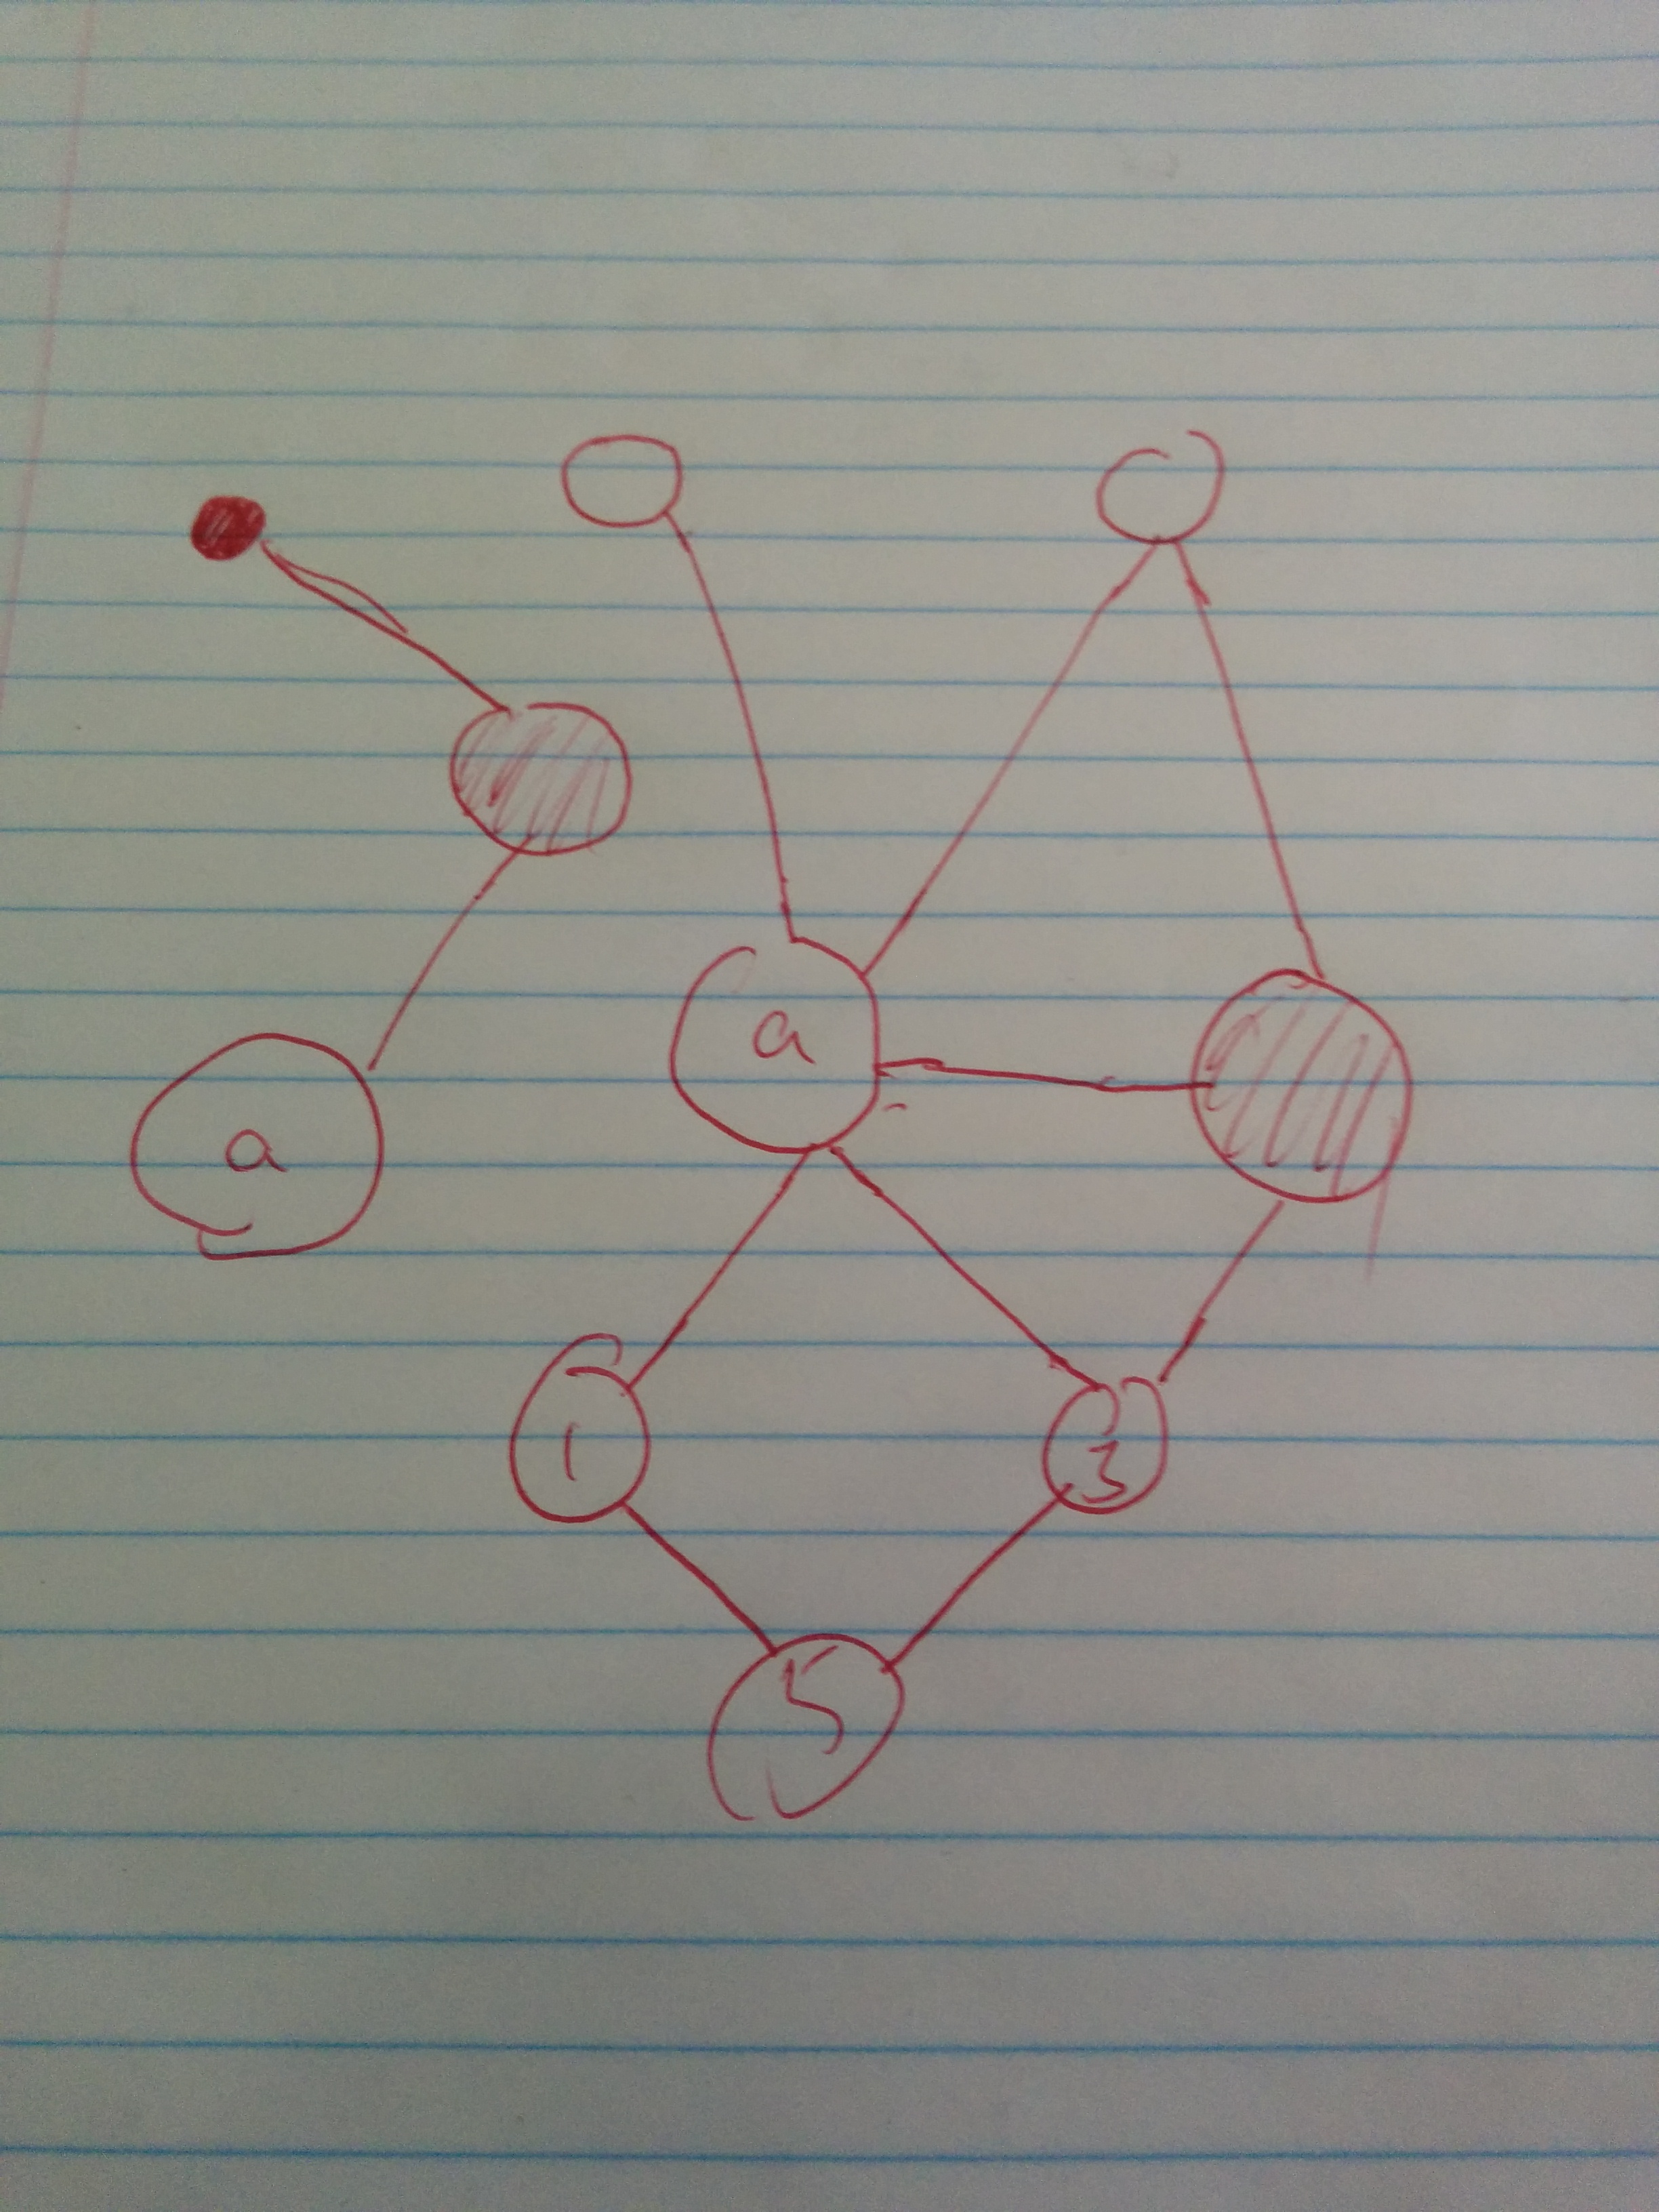 a
a
1
3
5